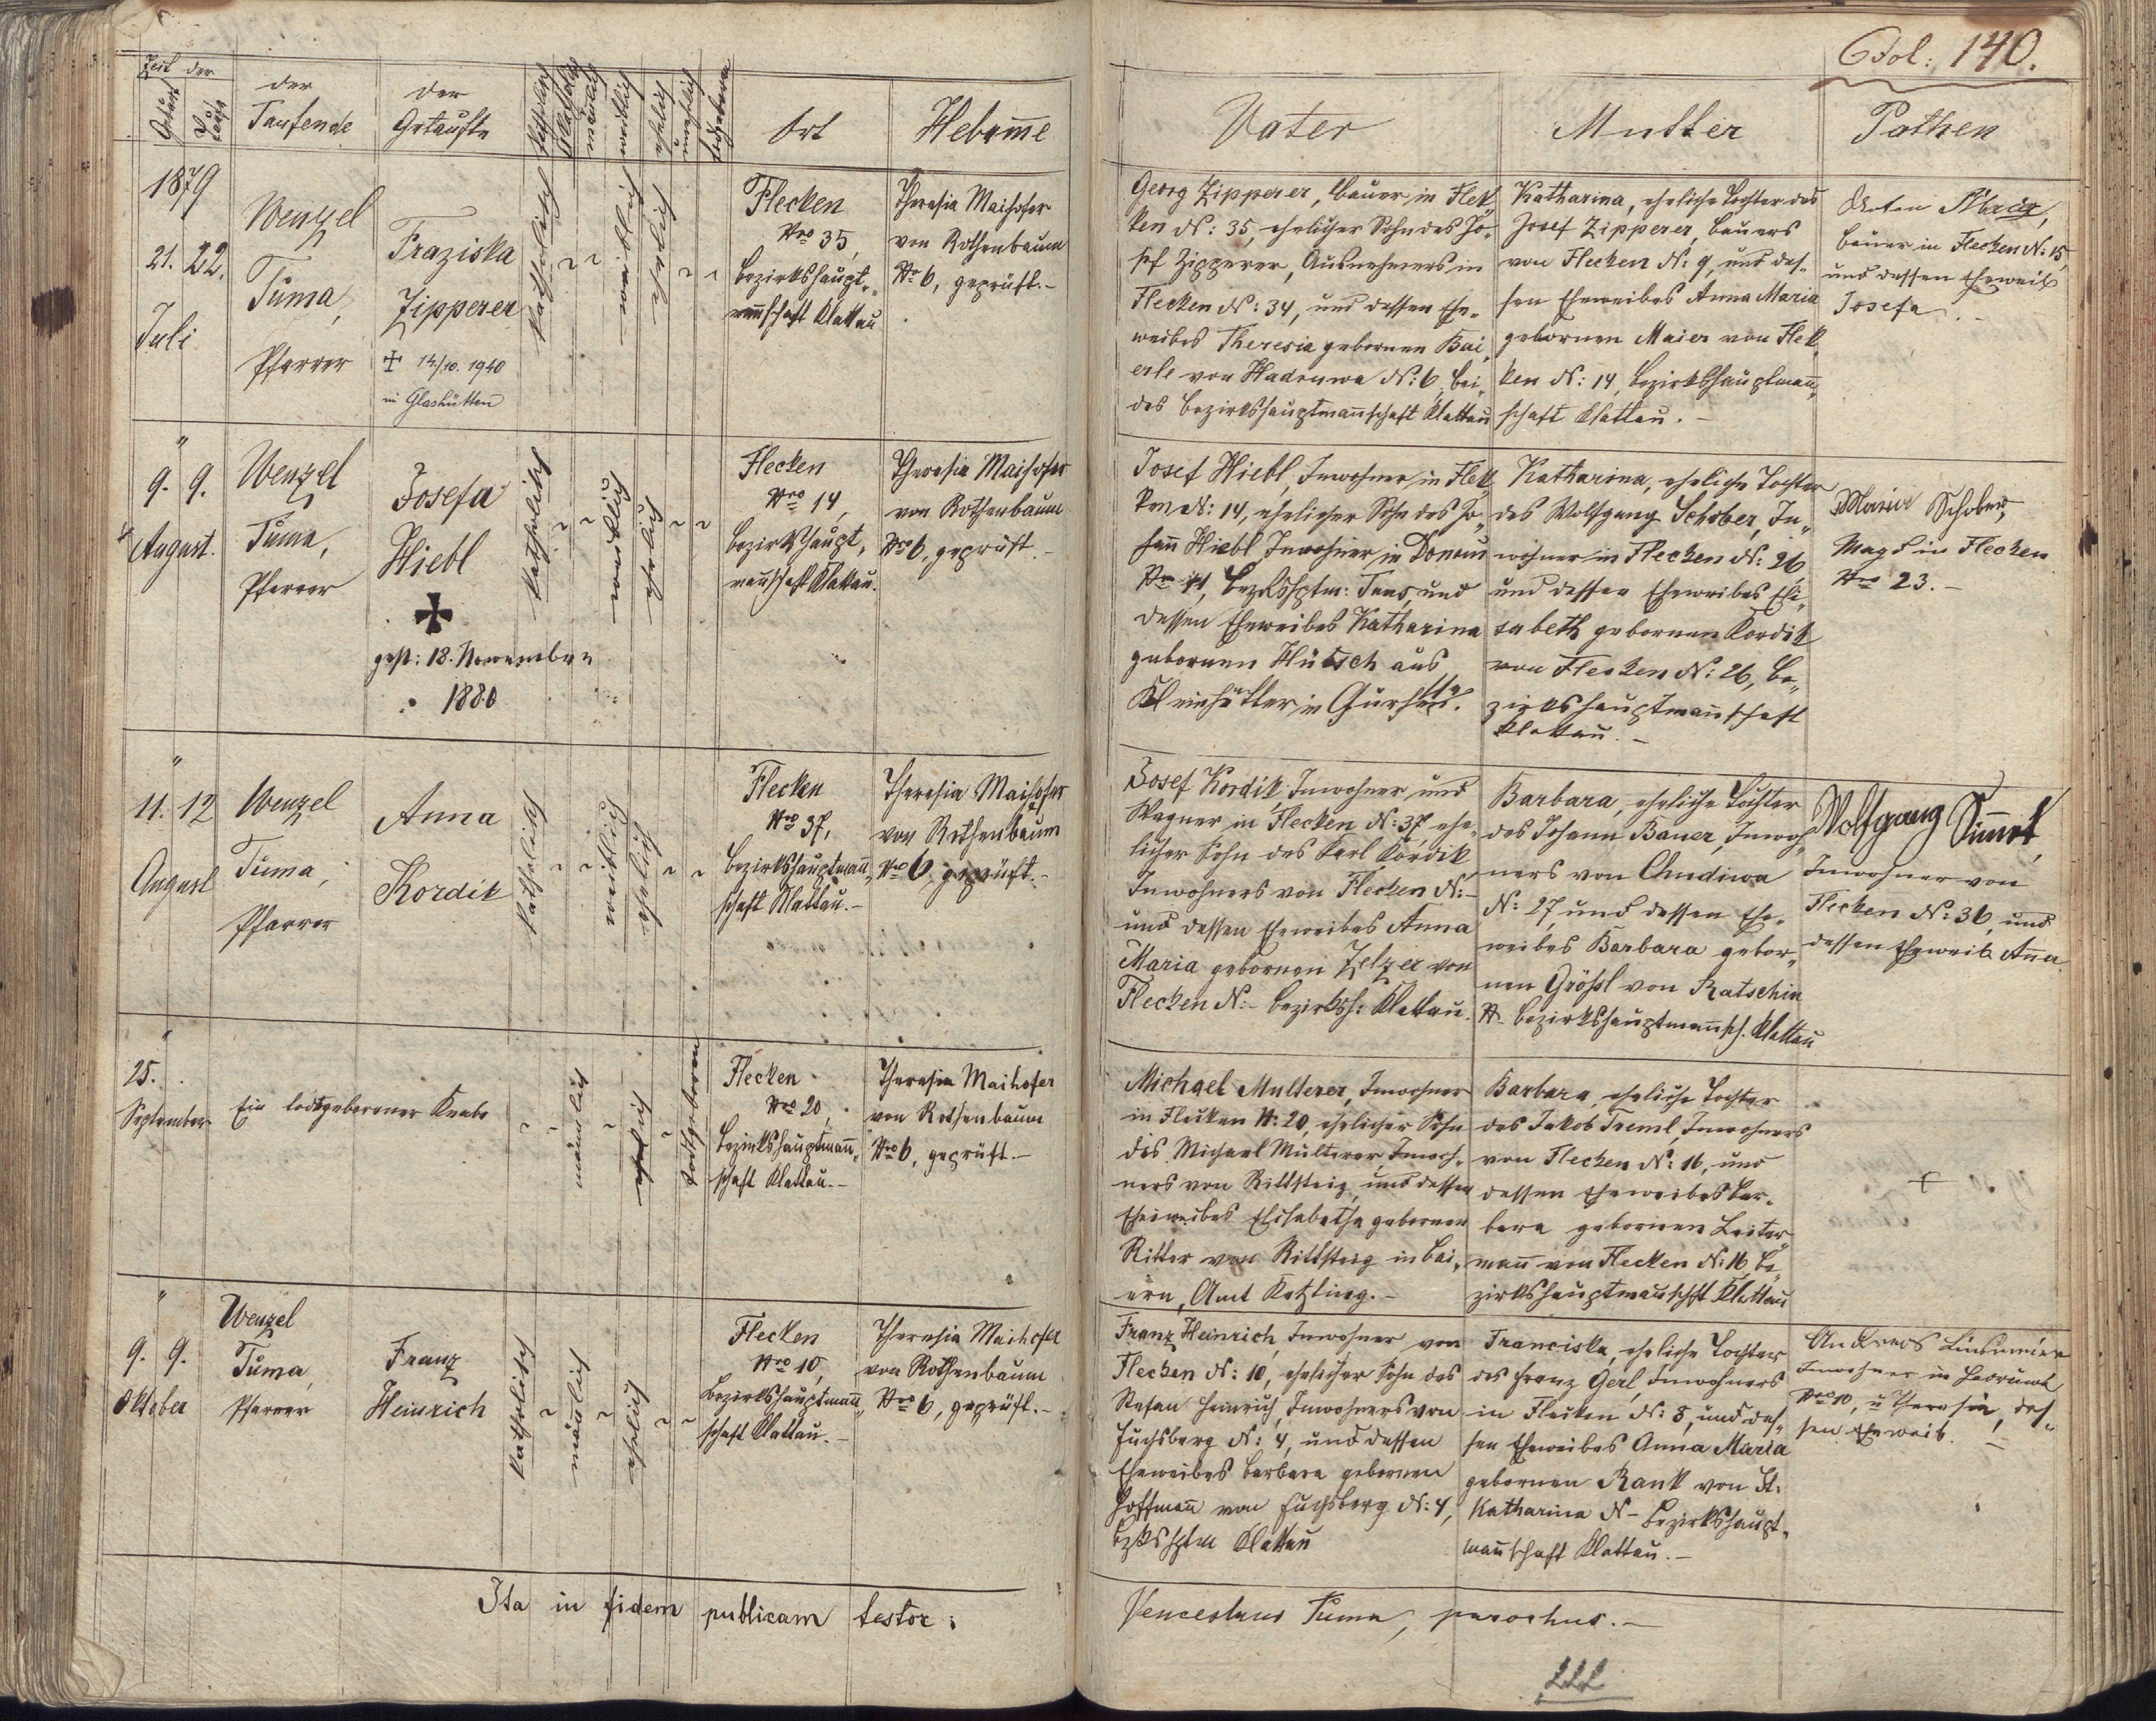 Fol: 140.
Zeit der
Geburt
Taufe
der
Taufende
der
Getaufte
katholisch
akatholisch
mänlich
weiblich
ehelich
unehelich
todtgeboren
Ort
Hebam̅e
Vater
Mutter
Pathen
1879
21. 22.
Juli
Wenzel
Tuma,
Pfarrer
Fraziska
Zipperer
✠ 14/10. 1940
in Glashütten
katholisch
weiblich
ehelich
Flecken
Nro 35,
Bezirkshaupt-
man̅schaft Klattau
Theresia Maihofer
von Rothenbaum
No 6, geprüft.-
Georg Zipperer, Bauer in Flek-
ken N: 35, ehelicher Sohn des Jo-
sef Zipperer, Ausnehmers in
Flecken N: 34, und dessen Ehe-
weibes Theresia gebornen Bai-
erle von Hadruwa N: 6, bei-
des Bezirkshauptman̅schaft Klattau
Katharina, eheliche Tochter des
Josef Zipperer, Bauers
von Flecken N: 9, und des-
sen Eheweibes Anna Maria
gebornen Maier von Flek-
ken N: 14, Bezirkshauptman̅-
schaft Klattau.-
Bauer in Flecken N: 15,
und dessen Eheweib
Josefa.-
"
9. 9.
August.
Wenzel
Tuma,
Pfarrer
Josefa
Hiebl
✠
gest: 18. November
1880
katholisch
weiblich
ehelich
Flecken
Nro 14,
Bezirkshaupt-
man̅schaft Klattau.
Theresia Maihofer
von Rothenbaum
Nro 6, geprüft.-
Josef Hiebl, Inwohner in Flek-
ken N: 14, ehelicher Sohn des Jo-
han̅ Hiebl Inwohner in Donau
No 11, Bezrkshptm: Taus, und
dessen Eheweibes Katharina
gebornen Hütsch aus
Kleinhütter in
Katharina, eheliche Tochter
des Wolfgang Schober, In-
wohner in Flecken N: 26
und dessen Eheweibes Eli-
sabeth gebornen Kordik
von Flecken N: 26, Be-
zirkshauptman̅schaft
Klattau.-
Maria Schober,
Magd in Flecken
Nro 23.-
"
11. 12
August
Wenzel
Tuma,
Pfarrer
Anna
Kordik
katholisch
weiblich
ehelich
Flecken
Nro 37,
Bezirkshauptman̅-
schaft Klattau.-
Theresia Maihofer
von Rothenbaum
Nro 6, geprüft.-
Josef Kordik, Inwohner und
Wagner in Flecken N: 37, ehe-
licher Sohn des Karl Kordik
Inwohners von Flecken N:-
und dessen Eheweibes Anna
Maria gebornen Zelzer von
Flecken N:- Bezirksh: Klattau.
Barbara, eheliche Tochter
des Johann Bauer, Inwoh-
ners von Chudiwa
N: 27, und dessen Ehe-
weibes Barbara gebor-
nen Größl von Ratschin
N- Bezirkshauptman̅sch. Klattau
Wolfgang Sim̅et,
Inwohner von
Flecken N: 36, und
dessen Eheweib An̅a.
"
25.
September
Ein todtgeborener Knabe
män̅lich
ehelich
todtgeboren
Flecken
Nro 20,
Bezirkshauptman̅-
schaft Klattau.-
Theresia Maihofer
von Rothenbaum
Nro 6, geprüft.-
Michael Multerer, Inwohner
in Flecken N: 20, ehelicher Sohn
des Michael Multerer, Inwoh-
ners von Rittsteig, und dessen
Eheweibes Elisabetha gebornen
Ritter von Rittsteig in Bai-
ern, Amt Kötzting.-
Barbara, eheliche Tochter
des Jakob Treml, Inwohners
von Flecken N: 16, und
dessen Eheweibes Bar-
bara gebornen Leiter-
man̅ von Flecken N: 16 Be-
zirkshauptmanschft Klattau
"
9. 9.
Oktober
Wenzel
Tuma,
Pfarrer
Franz
Heinrich
katholisch
mänlich
ehelich
Flecken
Nro 10,
Bezirkshauptman̅-
schaft Klattau.-
Theresia Maihofer
von Rothenbaum
Nro 6, geprüft.-
Franz Heinrich, Inwohner von
Flecken N: 10, ehelicher Sohn des
Stefan Heinrich, Inwohners von
Fuchsberg N: 4, und dessen
Eheweibes Barbara gebornen
Hoffman̅ von Fuchsberg N: 4,
Bzkshptm Klattau
Franciska, eheliche Tochter
des Franz Gerl, Inwohners
in Flecken N: 8, und des-
sen Eheweibes Anna Maria
gebornen Rank von St.
Katharina N- Bezirkshaupt-
man̅schaft Klattau.-
Andreas
Inwohner in
Nro 10, u Theresia, des-
sen Eheweib.-
Ita in fidem publicam testor:
Venceslaus Tuma, parochus.-
222